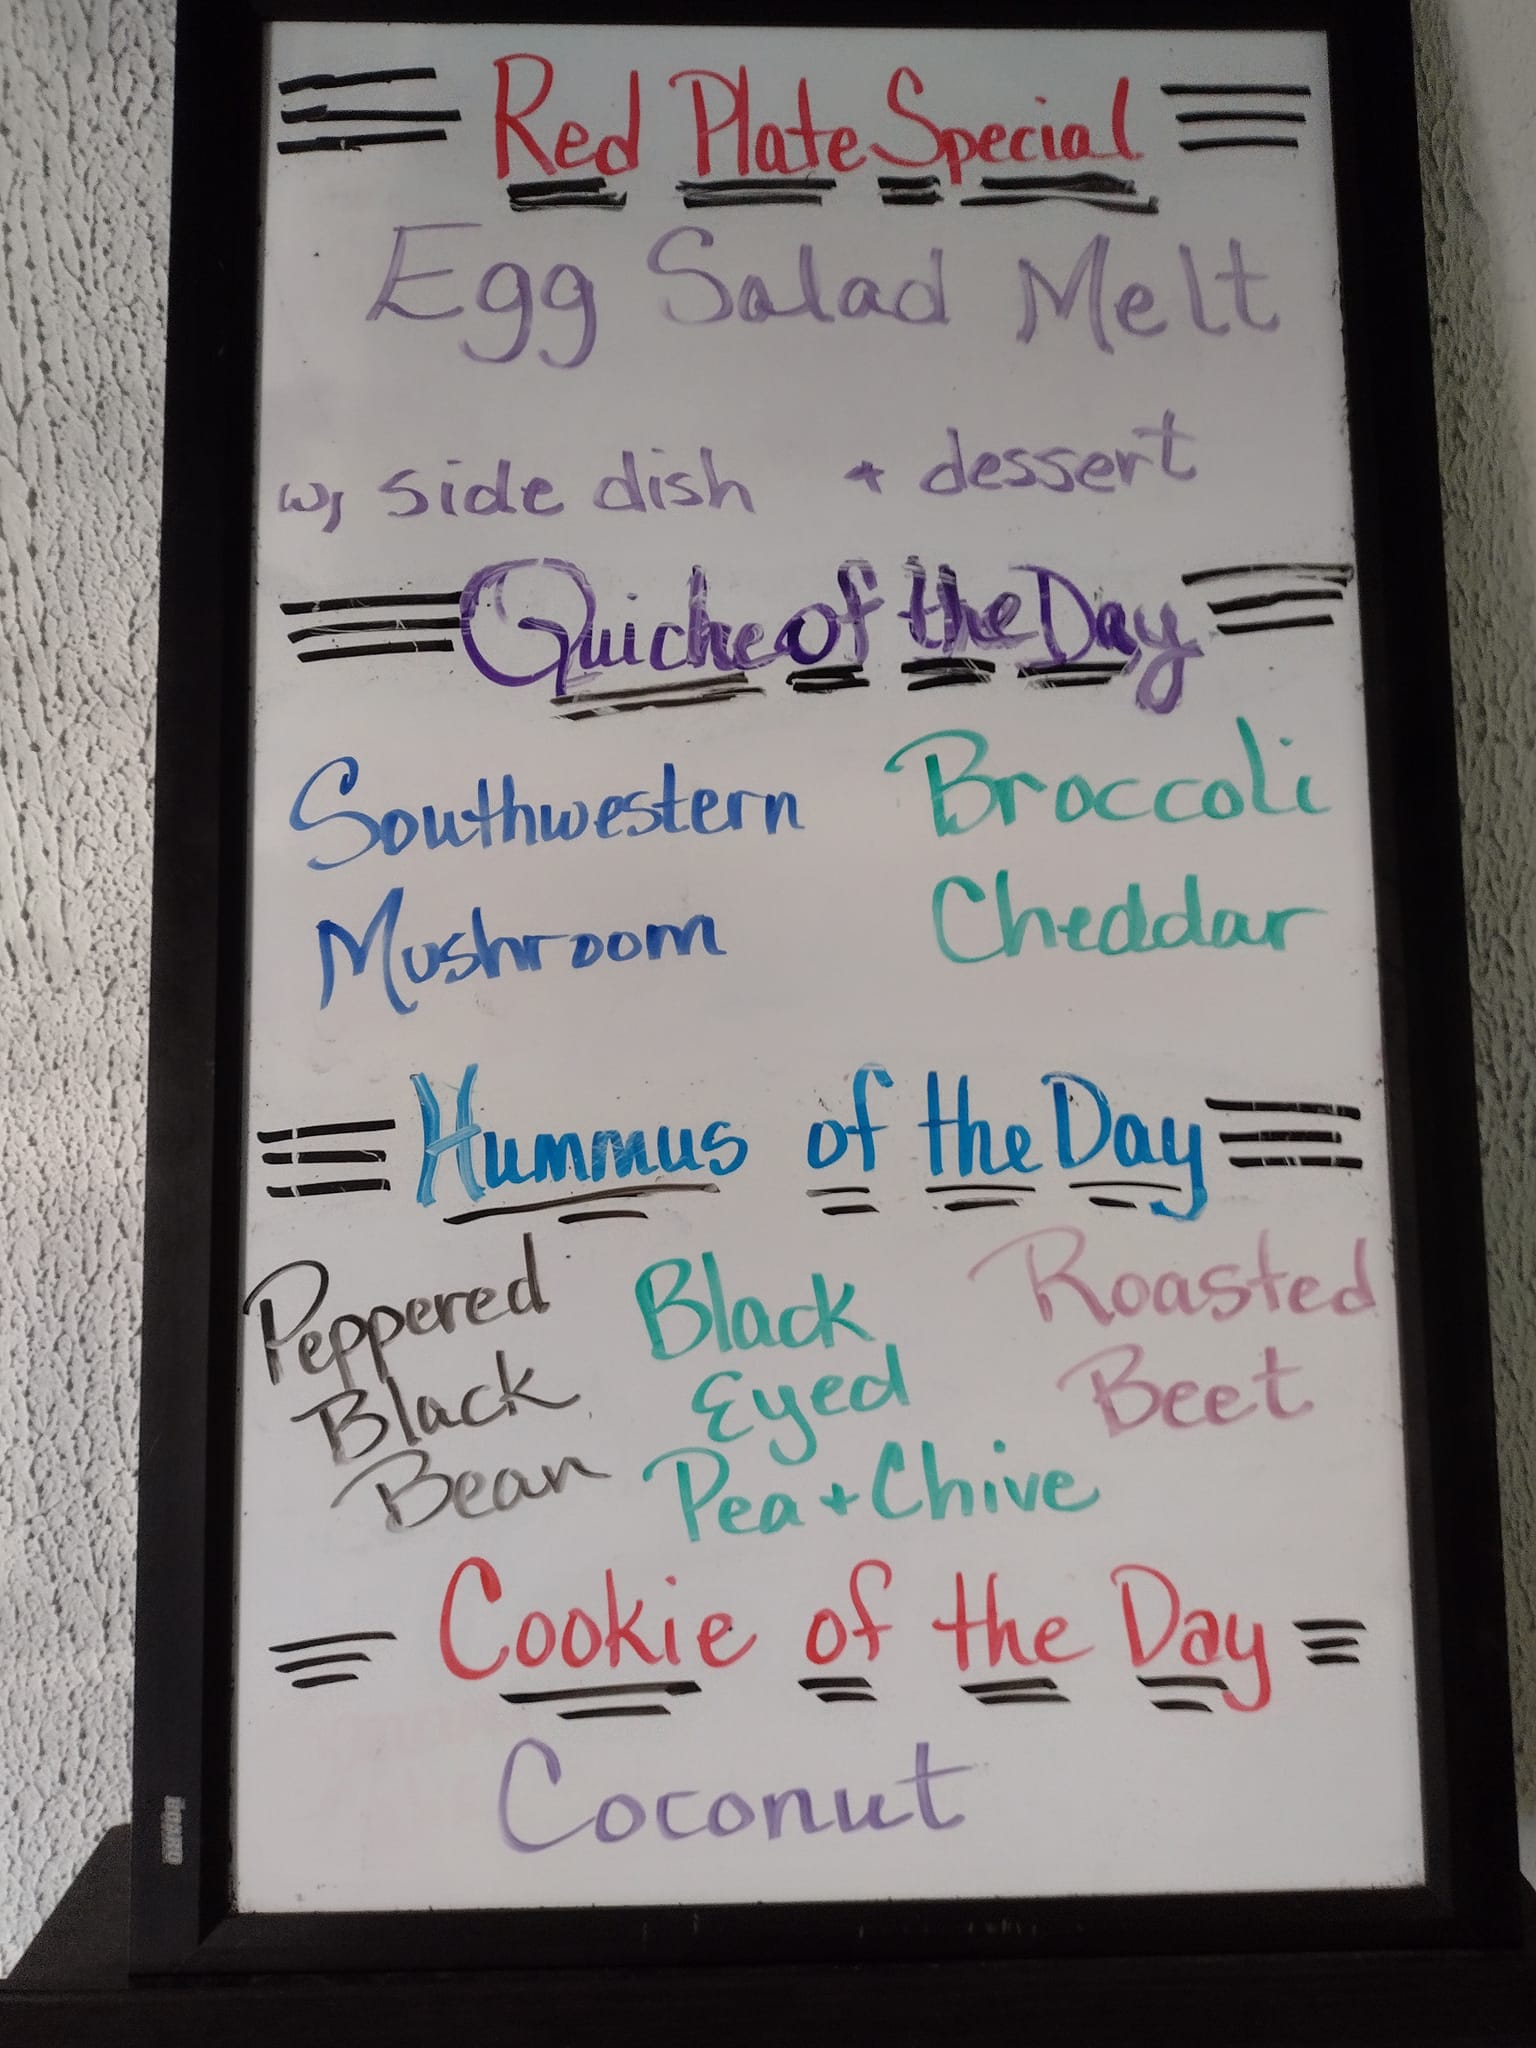 Red Plate Special
Egg Salad Melt
w/ side dish + dessert
Quiche of the Day
Southwestern
Mushroom
Broccoli
Cheddar
Hummus of the Day
Peppered
Black
Bean
Black
Eyed
Pea + Chive
Roasted
Beet
Cookie of the Day
Coconut